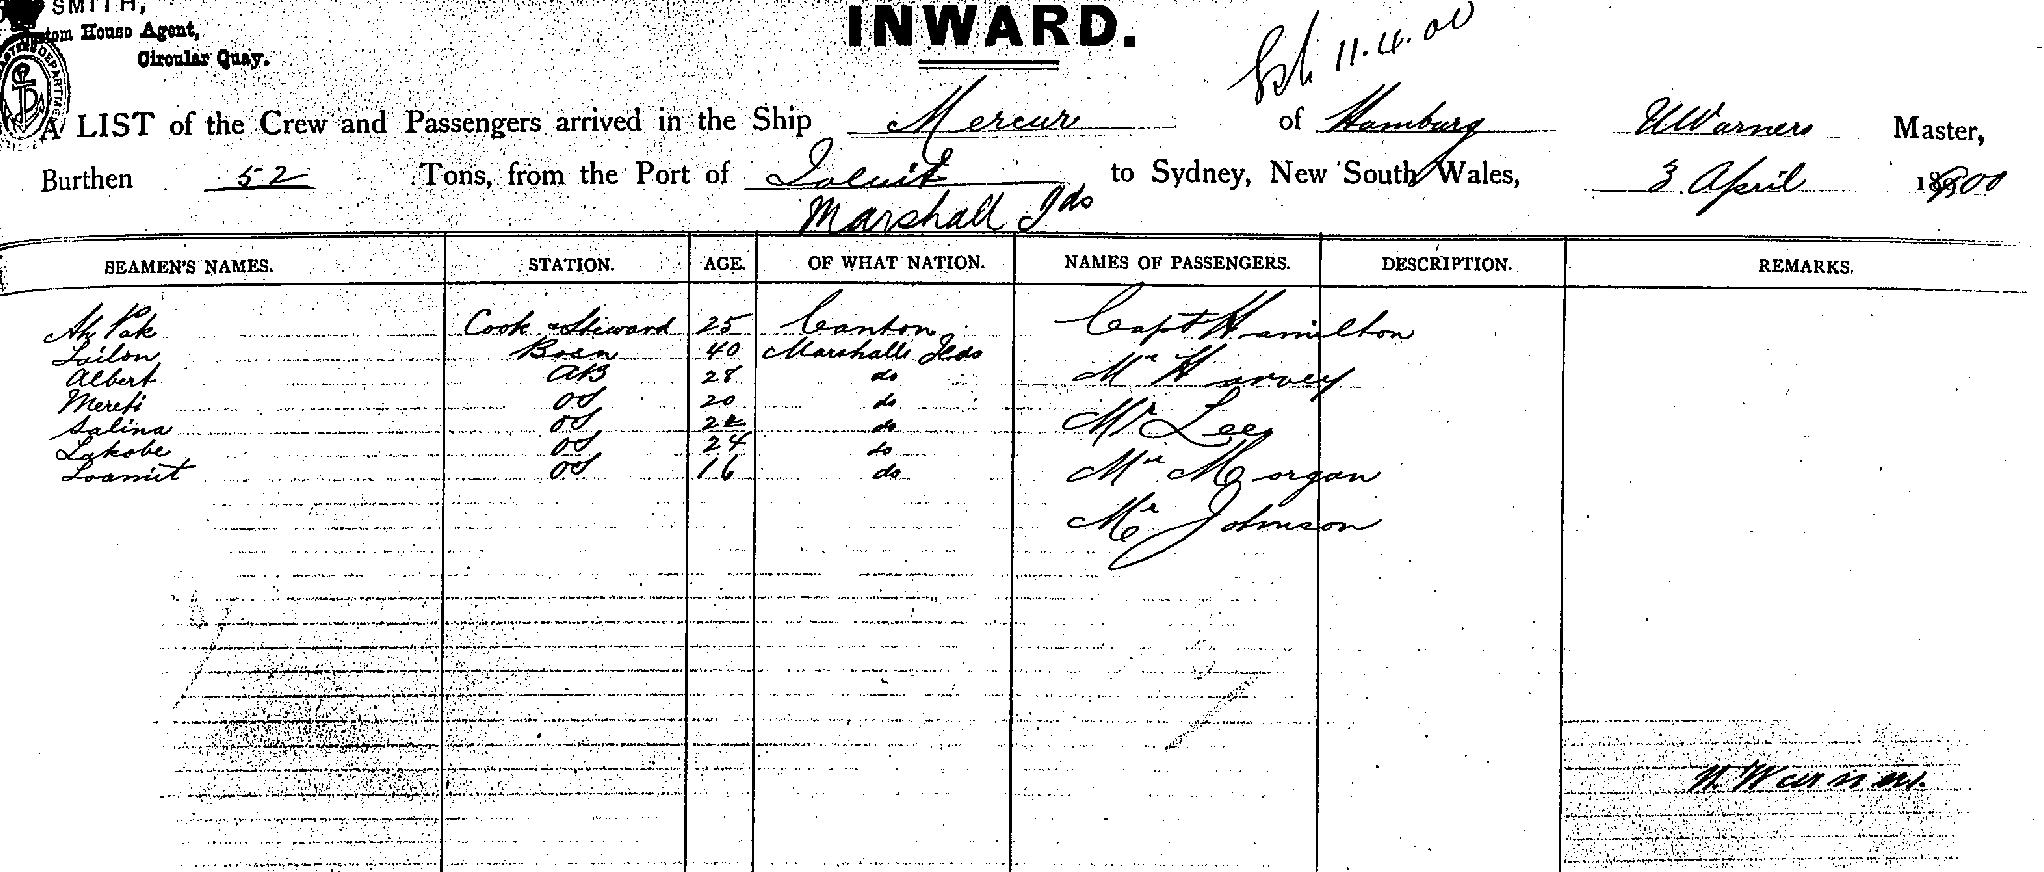 SMITH,
Custom House Agent,
Circular Quay.
INWARD.
11.4.00
A LIST of the Crew and Passengers arrived in the Ship Mercur of Hamburg Warners Master,
Burthen 52 Tons, from the Port of Jaluit to Sydney, New South Wales, 3 April 1900
Marshall Ids
SEAMEN'S NAMES. STATION. AGE. OF WHAT NATION. NAMES OF PASSENGERS. DESCRIPTION. REMARKS.
Ah Pak Cook & Steward 25 Canton Capt Hamilton
Lailon Bosn 40 Marshall Ilds
Albert AB 28 do Mr Harvey
Merefi OS 20 do
Salina OS 22 do Mr Lee
Lakobe OS 24 do
Loamit OS 16 do Mr Morgan
Mr Johnson